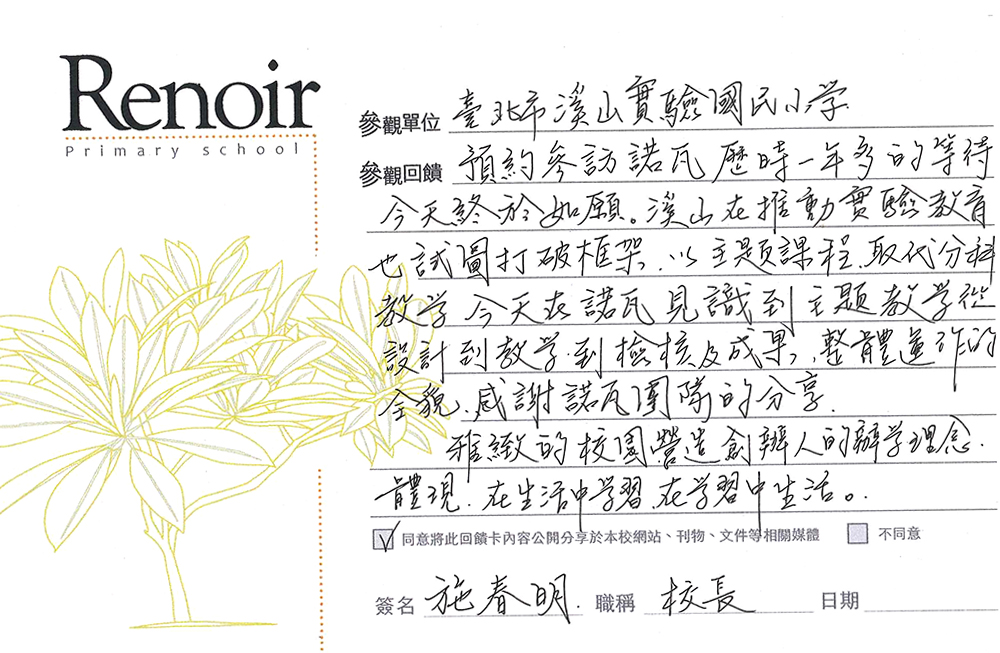 Renoir
Primary school
參觀單位 臺北市溪山實驗國民小学
參觀回饋 預約參訪諾瓦歷時一年多的等待
今天終於如願。溪山在推動實驗教育
也試圖打破框架、以主題課程、取代分科
教学 今天在諾瓦見識到主題教学從
設計到教学、到檢核及成果、整體運作的
全貌、感謝諾瓦團隊的分享.
雅緻的校園營造創辦人的辦学理念.
體現.在生活中学習.在学習中生活。
同意將此回饋卡內容公開分享於本校網站、刊物、文件等相關媒體 不同意
簽名 施春明. 職稱 校長 日期